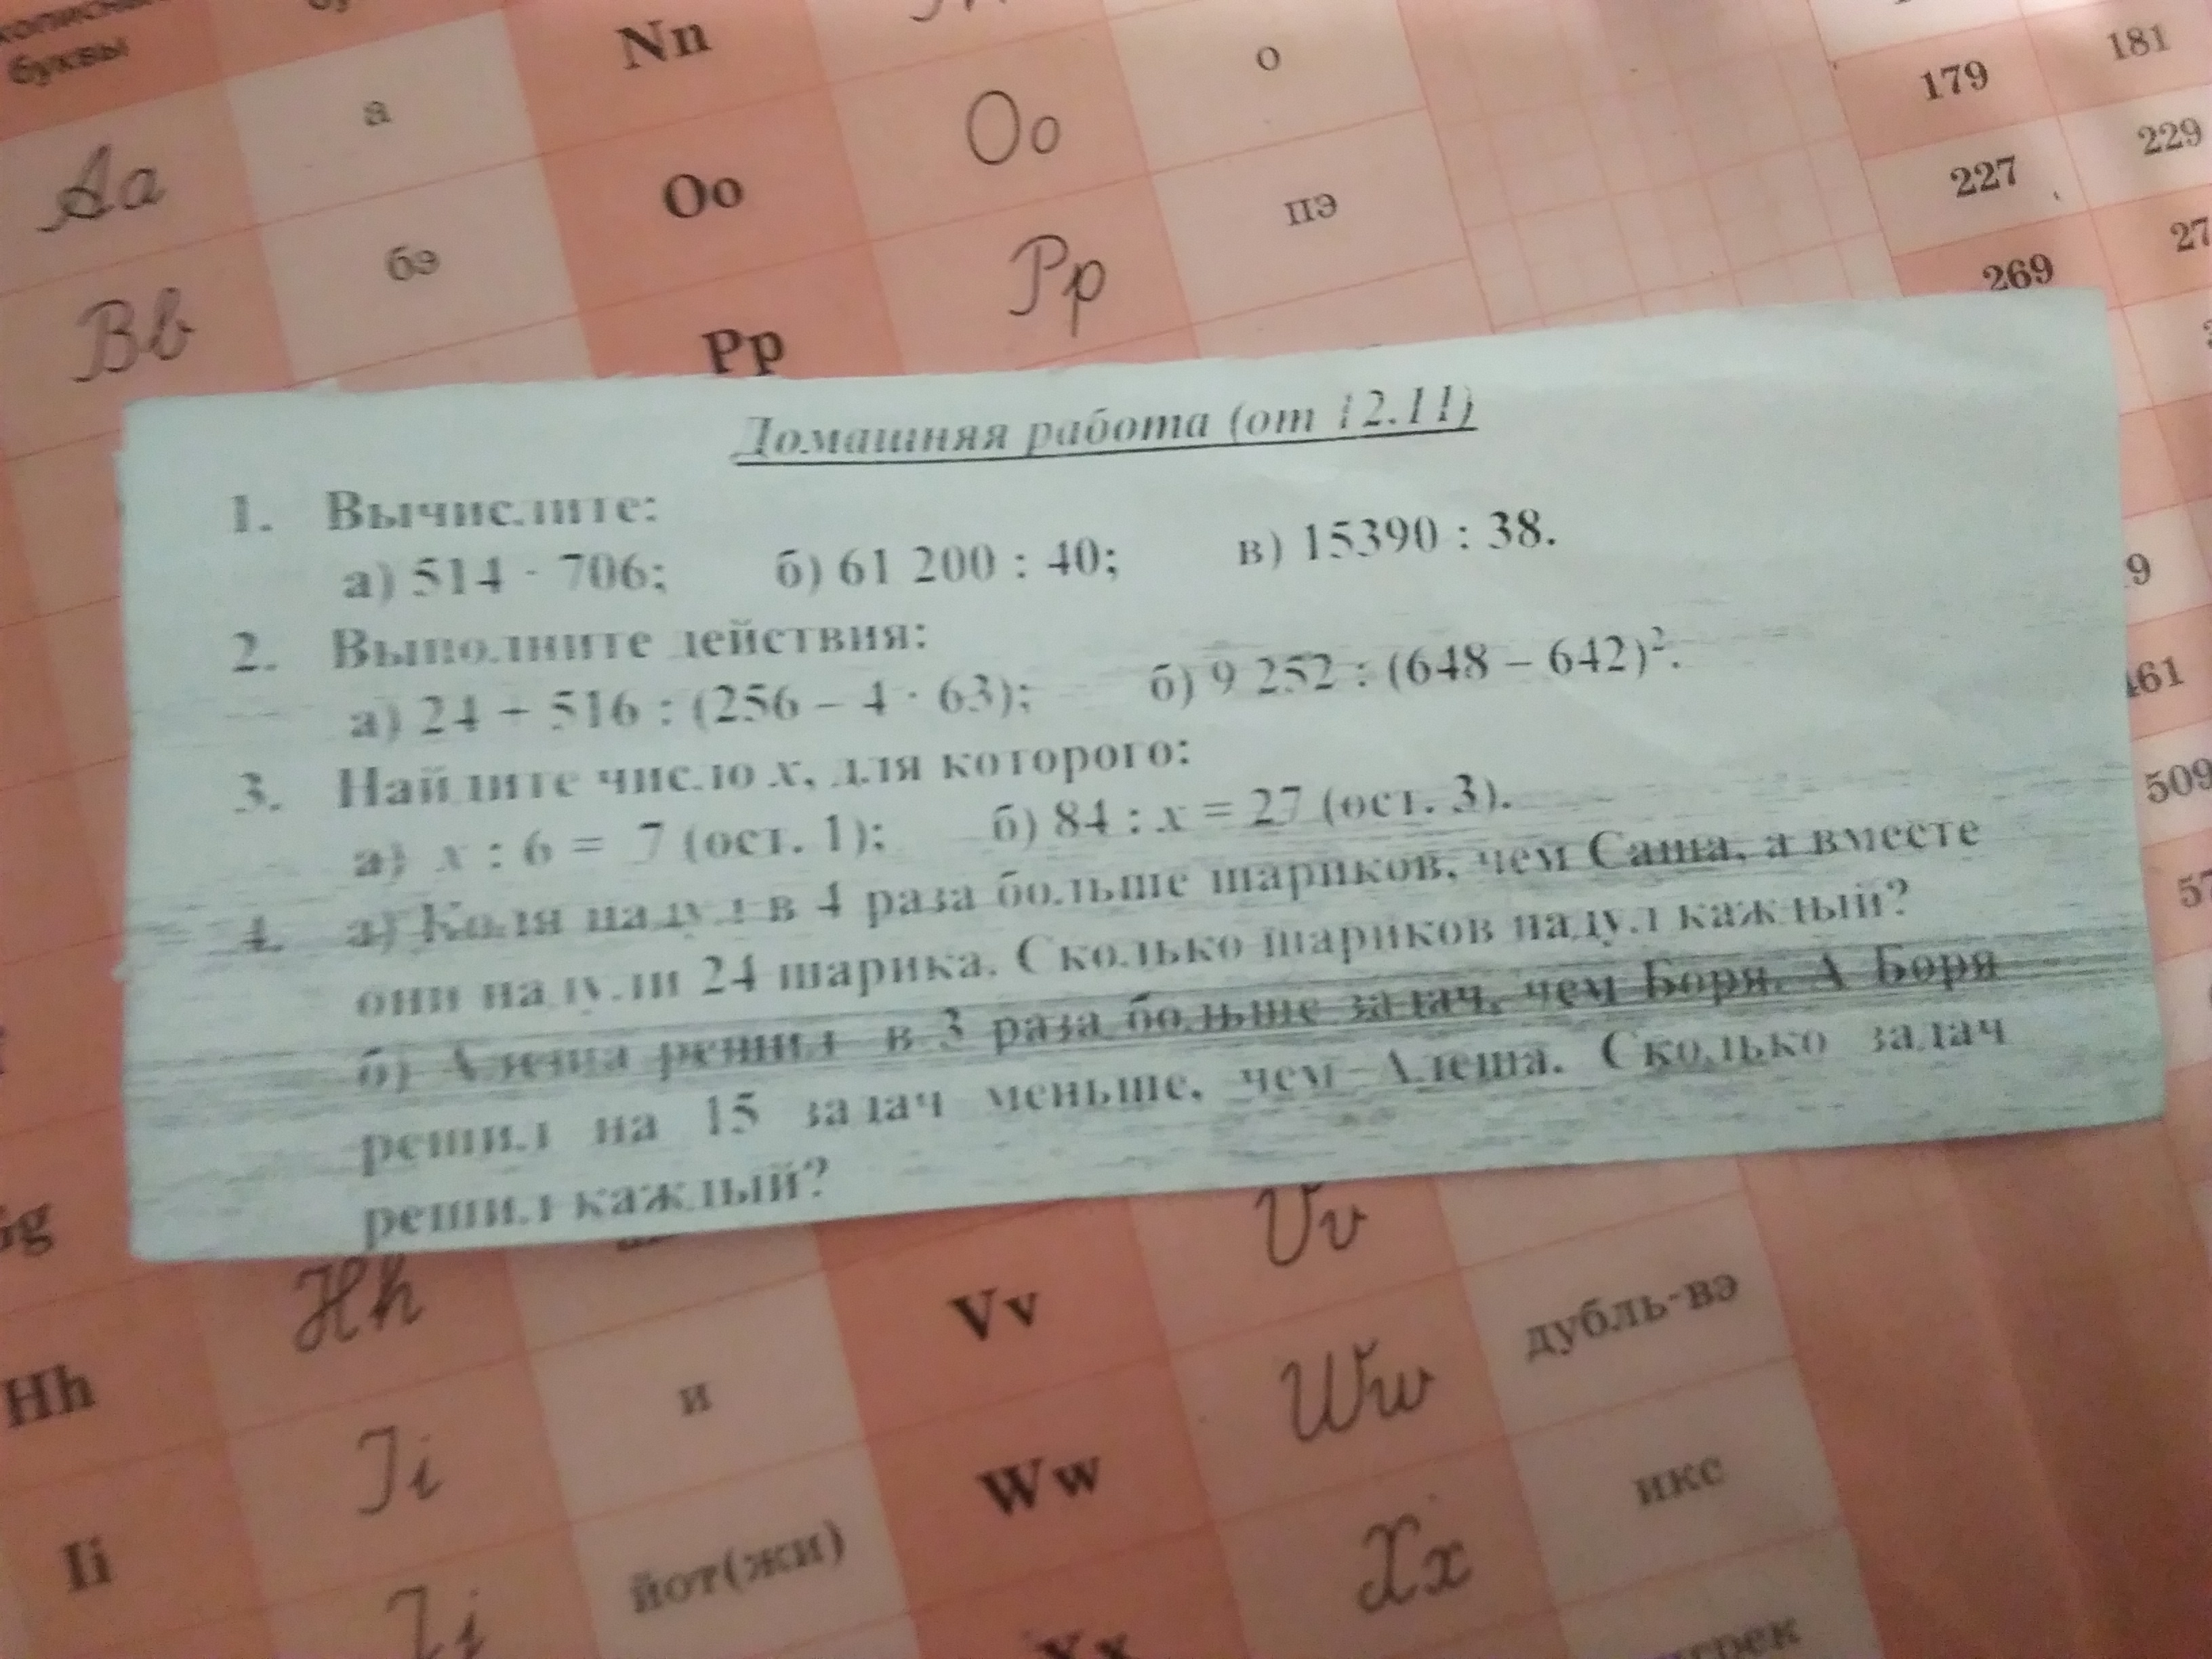 буквы
Aa
а
Nn
Oo
о
Bb
бэ
Oo
Pp
пэ
Pp
179
181
227
229
269
Домашняя работа (от 12.11)
1. Вычислите:
а) 514 · 706; б) 61 200 : 40; в) 15390 : 38.
2. Выполните действия:
а) 24 + 516 : (256 – 4 · 63); б) 9 252 : (648 – 642)².
3. Найдите число x, для которого:
а) x : 6 = 7 (ост. 1); б) 84 : x = 27 (ост. 3).
4. а) Коля надул в 4 раза больше шариков, чем Саша, а вместе
они надули 24 шарика. Сколько шариков надул каждый?
б) Алеша решил в 3 раза больше задач, чем Боря. А Боря
решил на 15 задач меньше, чем Алеша. Сколько задач
решил каждый?
509
Hh
Hh
Vv
Vv
дубль-вэ
Ii
Ii
и
Ww
Ww
икс
йот(жи)
Xx